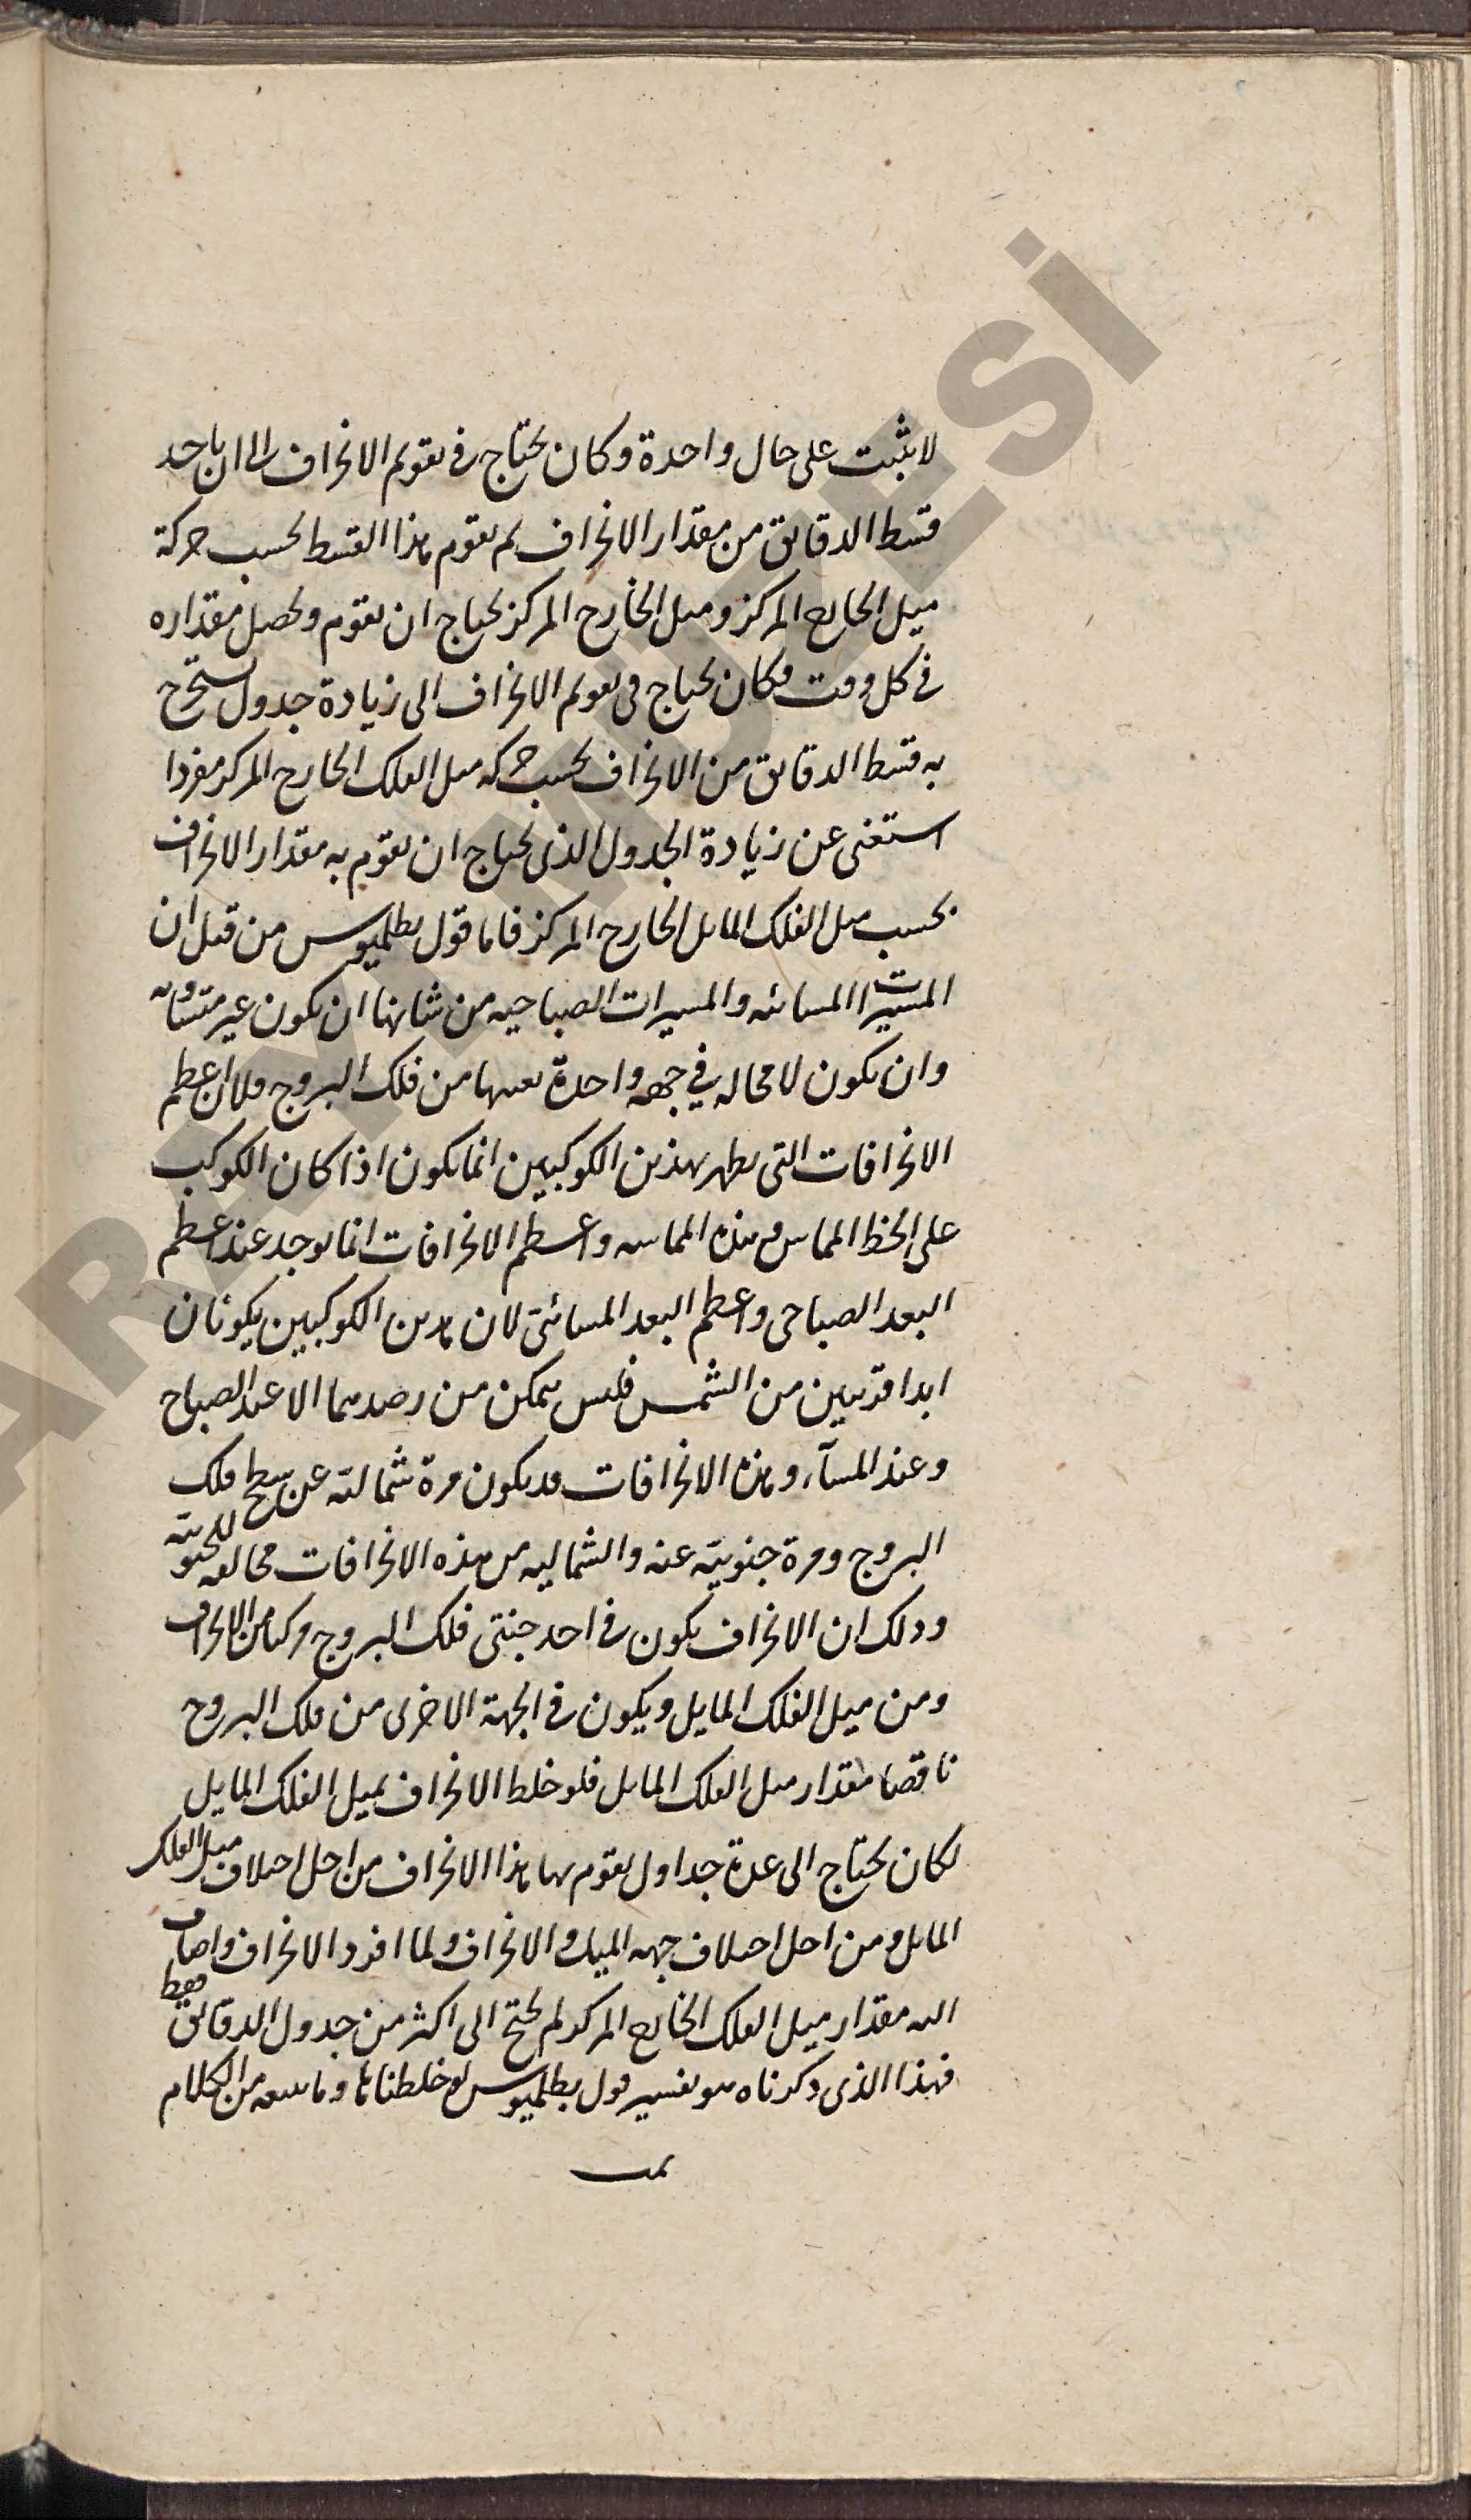 لا يثبت على حال واحدة وكان يحتاج في تقويم الانحراف الى ان ياخذ
قسط الدقايق من مقدار الانحراف ثم يقوم هذا القسط بحسب حركة
ميل الخارج المركز وميل الخارج المركز يحتاج ان يقوم ويحصل مقداره
في كل وقت فكان يحتاج في تقويم الانحراف الى زيادة جدول يستخرج
به قسط الدقايق من الانحراف بحسب حركه ميل الفلك الخارج المركز مفردا
استغنى عن زيادة الجدول الذي يحتاج ان يقوم به مقدار الانحراف
بحسب ميل الفلك المايل الخارج المركز فاما قول بطلميوس من قبل ان
المسيرات المسائيه والمسيرات الصباحيه من شانها ان تكون غير متساويه
وان تكون لا محاله في جهه واحدة بعينها من فلك البروج فلان اعظم
الانحرافات التي تظهر بهذين الكوكبين انما تكون اذا كان الكوكب
على الخط المماس هذه المماسه واعظم الانحرافات انما يوجد عند اعظم
البعد الصباحي واعظم البعد المسائي لان هذين الكوكبين يكونان
ابدا قريبين من الشمس فليس يمكن من رصدهما الا عند الصباح
وعند المسآء وهذه الانحرافات قد تكون مرة شمالية عن سطح فلك
البروج ومرة جنوبية عنه والشماليه من هذه الانحرافات مخالفه للجنوبية
وذلك ان الانحراف يكون في احد جنبتي فلك البروج مركبا من الانحراف
ومن ميل الفلك المايل ويكون في الجهة الاخرى من فلك البروج
ناقصا مقدار ميل الفلك المايل فلو خلط الانحراف بميل الفلك المايل
لكان يحتاج الى عدة جداول يقوم بها هذا الانحراف من اجل اختلاف ميل الفلك
المايل ومن اجل اختلاف جهه الميل والانحراف ولما افرد الانحراف واضاف
اليه مقدار ميل الفلك الخارج المركز لم يحتج الى اكثر من جدول الدقائق فقط
فهذا الذي ذكرناه هو تفسير قول بطلميوس لو خلطناها وما يتبعه من الكلام
تمت
ARI MÜZESİ